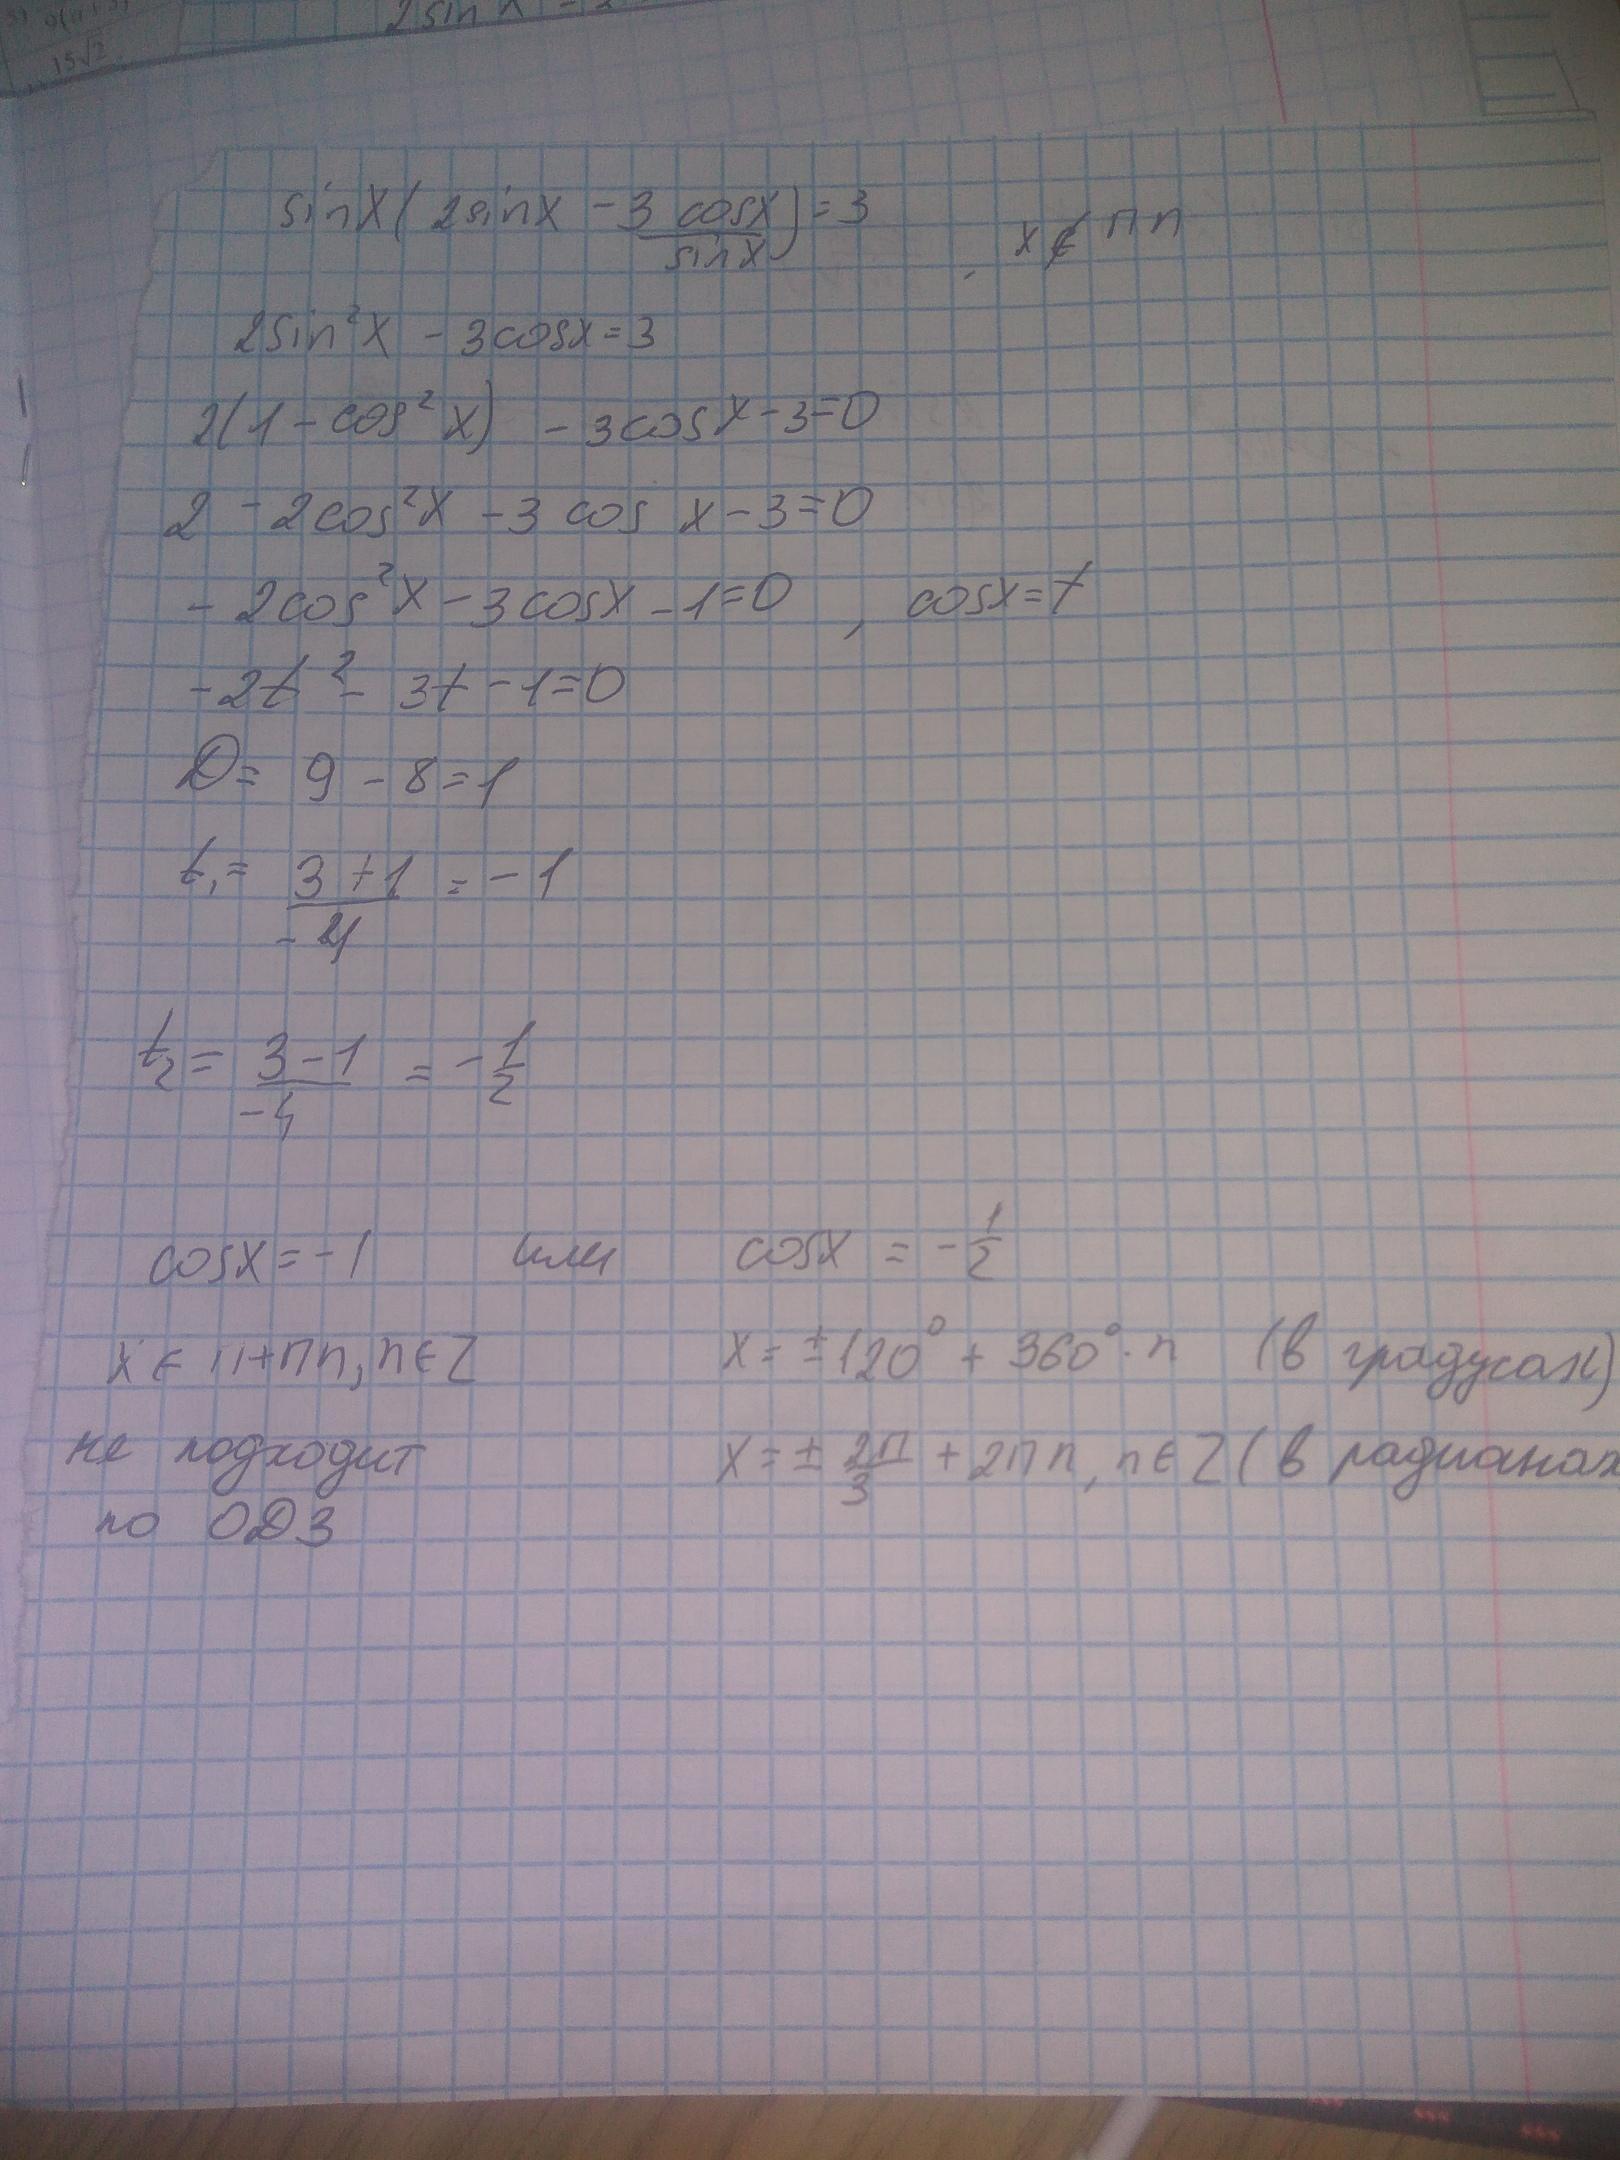 2 sin x = 2
15√2
sinx( 2sinx - 3 cosx/sinx) = 3 , x ∉ πn
2sin²x - 3cosx = 3
2(1 - cos²x) - 3cosx - 3 = 0
2 - 2cos²x - 3 cos x - 3 = 0
- 2cos²x - 3cosx - 1 = 0 , cosx = t
-2t² - 3t - 1 = 0
D = 9 - 8 = 1
t₁ = 3 + 1/-4 = - 1
t₂ = 3 - 1/-4 = - 1/2
cosx = - 1 или cosx = - 1/2
x ∈ π + πn, n ∈ Z x = ± 120° + 360° · n (в градусах)
не подходит x = ± 2π/3 + 2πn, n ∈ Z (в радианах
по ОДЗ